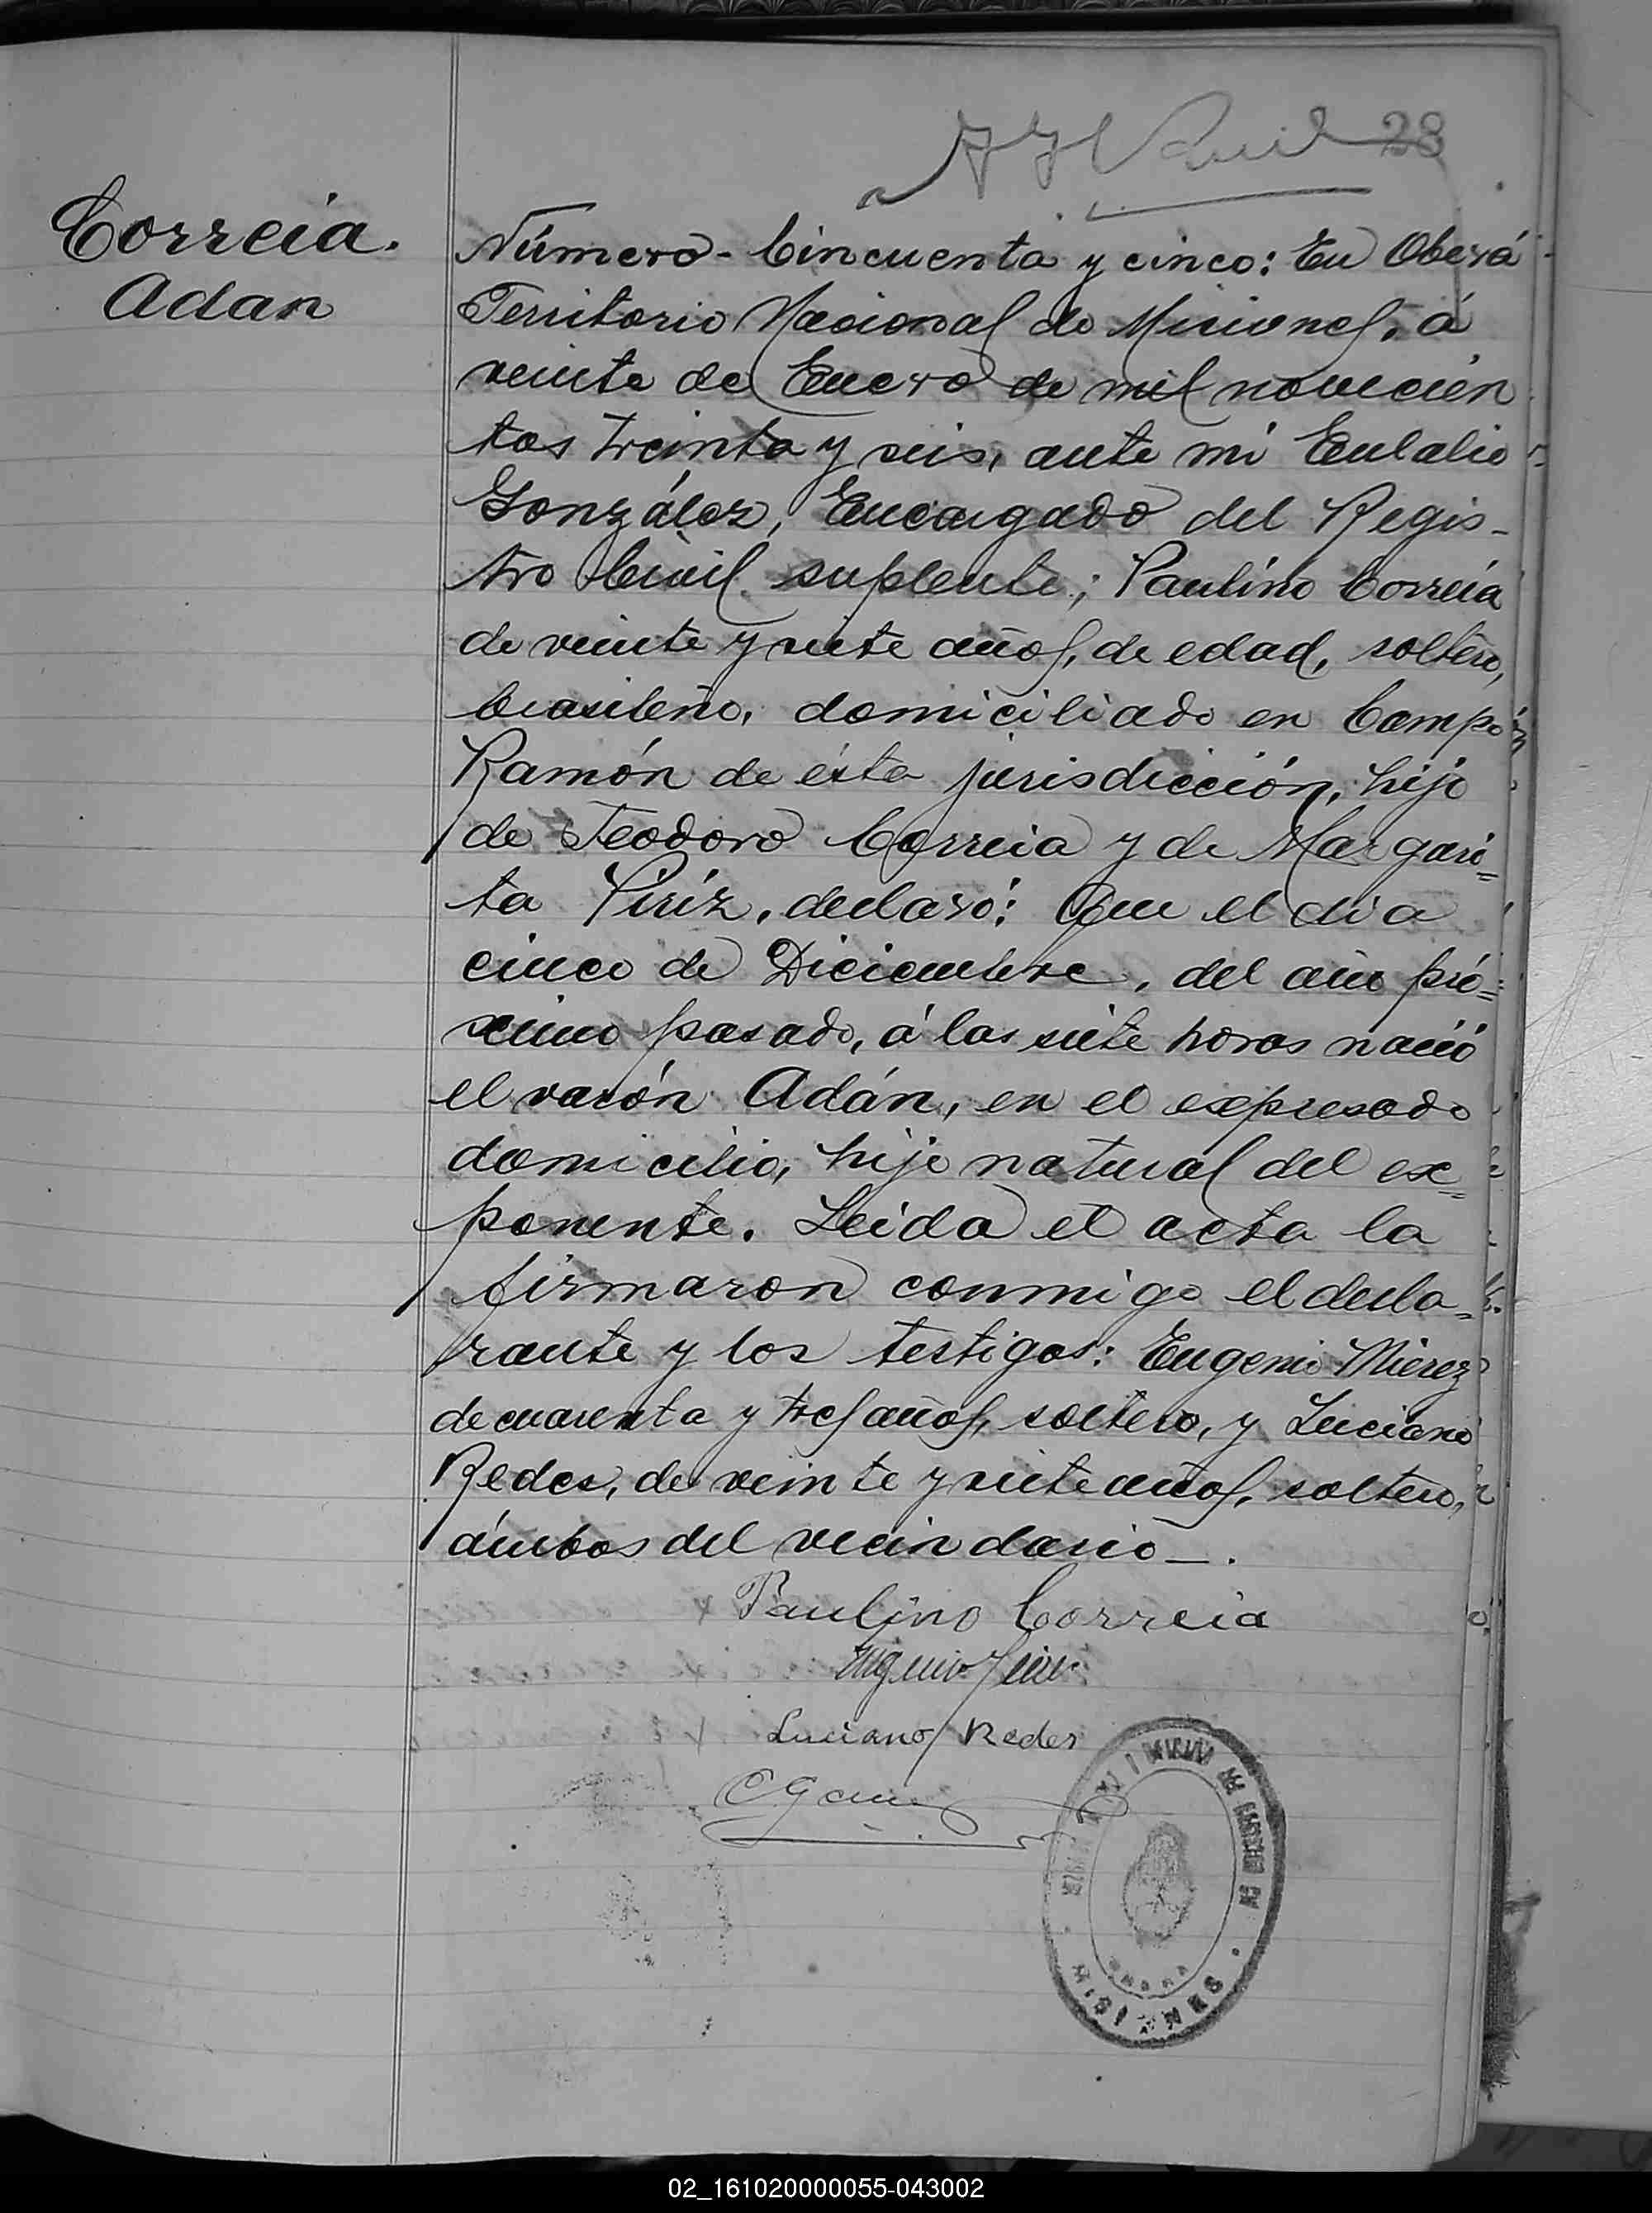 28
Correia.
Adan
Número - Cincuenta y cinco: En Oberá
Territorio Nacional de Misiones, á
veinte de Enero de mil novecien
tos treinta y seis, ante mi Eulalio
González, Encargado del Regis-
tro Civil suplente; Paulino Correia
de veinte y siete años, de edad, soltero,
brasileño, domiciliado en Campo
Ramón de ésta jurisdicción, hijo
de Teodoro Correia y de Margari=
ta Piriz, declaró: Que el dia
cinco de Diciembre, del año pró=
ximo pasado, á las siete horas nació
el varón Adán, en el expresado
domicilio, hijo natural del ex=
ponente. Leida el acta la
firmaron conmigo el decla=
rante y los testigos: Eugenio Mierez
de cuarenta y tres años, soltero, y Luciano
Redes, de veinte y siete años, soltero,
ámbos del vecindario—.
x Paulino Correia
x Luciano Redes
02_161020000055-043002